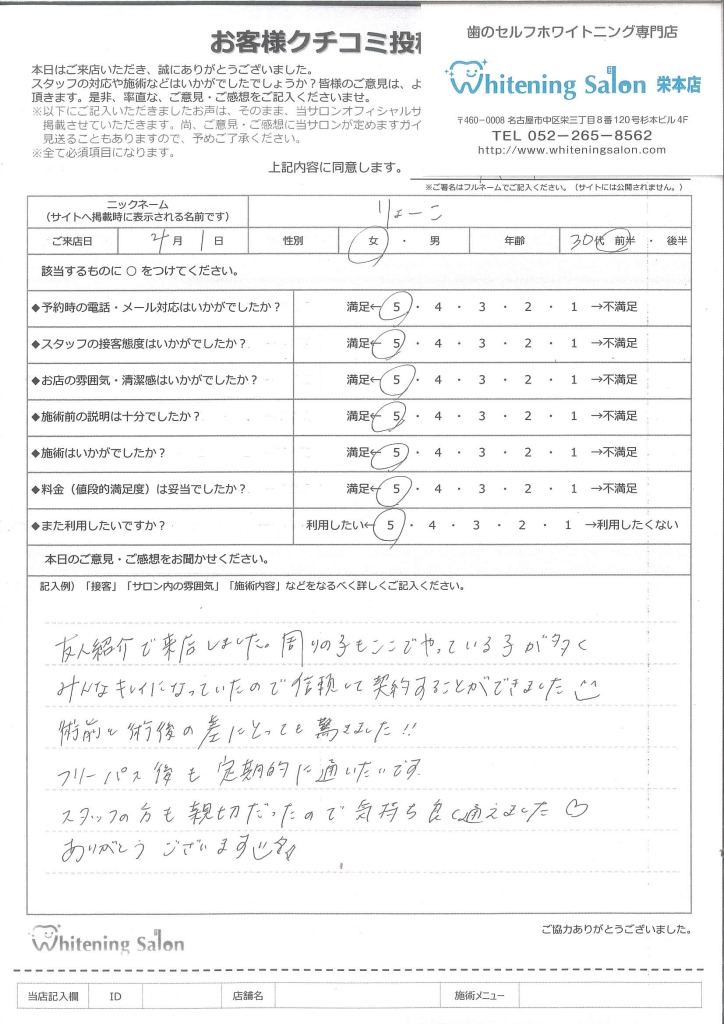 お客様クチコミ投稿
歯のセルフホワイトニング専門店
Whitening Salon 栄本店
〒460-0008 名古屋市中区栄三丁目8番120号杉本ビル4F
TEL 052-265-8562
http://www.whiteningsalon.com
本日はご来店いただき、誠にありがとうございました。
スタッフの対応や施術などはいかがでしたでしょうか？皆様のご意見は、よ
頂きます。是非、率直な、ご意見・ご感想をご記入くださいませ。
※以下にご記入いただきましたお声は、そのまま、当サロンオフィシャルサ
掲載させていただきます。尚、ご意見・ご感想に当サロンが定めますガイ
見送ることもありますので、予めご了承ください。
※全て必須項目になります。
上記内容に同意します。
※ご署名はフルネームでご記入ください。（サイトには公開されません。）
ニックネーム
（サイトへ掲載時に表示される名前です） りょーこ
ご来店日 4月 1日 性別 女 ・ 男 年齢 30代 前半 ・ 後半
該当するものに ○ をつけてください。
◆予約時の電話・メール対応はいかがでしたか？ 満足← 5 ・ 4 ・ 3 ・ 2 ・ 1 →不満足
◆スタッフの接客態度はいかがでしたか？ 満足← 5 ・ 4 ・ 3 ・ 2 ・ 1 →不満足
◆お店の雰囲気・清潔感はいかがでしたか？ 満足← 5 ・ 4 ・ 3 ・ 2 ・ 1 →不満足
◆施術前の説明は十分でしたか？ 満足← 5 ・ 4 ・ 3 ・ 2 ・ 1 →不満足
◆施術はいかがでしたか？ 満足← 5 ・ 4 ・ 3 ・ 2 ・ 1 →不満足
◆料金（値段的満足度）は妥当でしたか？ 満足← 5 ・ 4 ・ 3 ・ 2 ・ 1 →不満足
◆また利用したいですか？ 利用したい← 5 ・ 4 ・ 3 ・ 2 ・ 1 →利用したくない
本日のご意見・ご感想をお聞かせください。
記入例）「接客」「サロン内の雰囲気」「施術内容」などをなるべく詳しくご記入ください。
友人紹介で来店しました。周りの子もここでやっている子が多く
みんなキレイになっていたので信頼して契約することができました
術前と術後の差にとっても驚きました!!
フリーパス後も定期的に通いたいです
スタッフの方も親切だったので気持ち良く通えました♡
ありがとうございます
ご協力ありがとうございました。
Whitening Salon
当店記入欄 ID 店舗名 施術メニュー